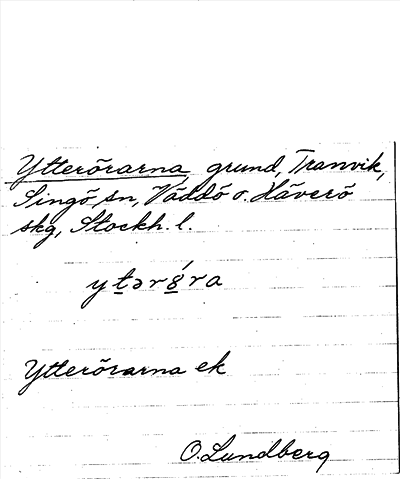 Ytterörarna, grund, Tranvik,
Singö sn, Väddö o. Häverö
skg, Stockh. l.
Ytterörarna ek
O. Lundberg